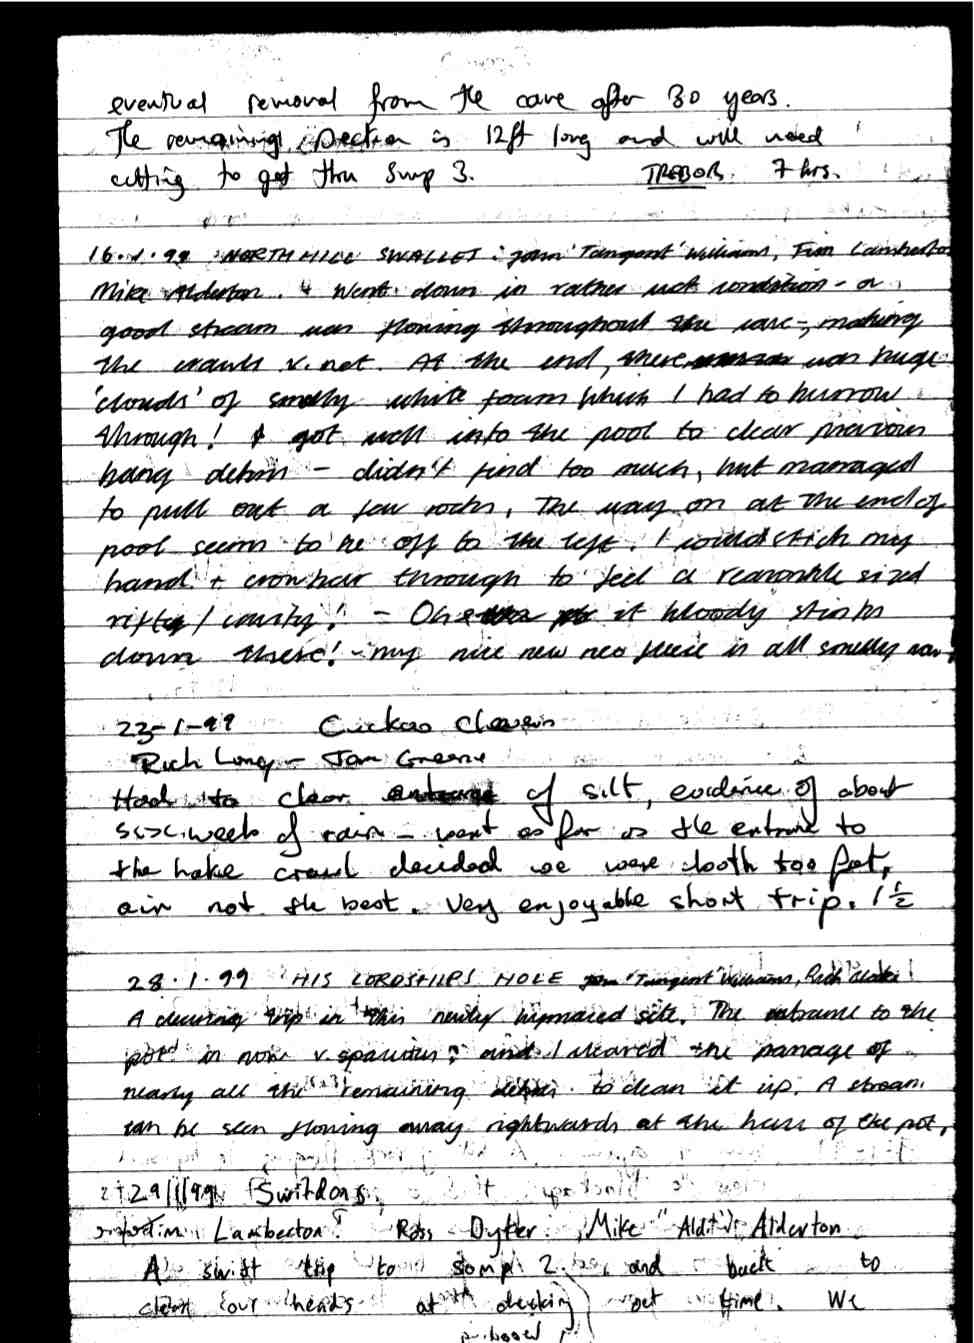 eventual removal from the cave after 30 years.
The remaining section is 12ft long and will need
cutting to get thru Sump 3. TREBOR. 7 hrs.
16.1.99 NORTH HILL SWALLET: John 'Tangent' Williams, Tim Lamberton
Mike Alderton. Went down in rather wet condition - a
good stream was flowing throughout the cave, making
the crawls v. wet. At the end, there was huge
'clouds' of smelly white foam which I had to burrow
through! I got well into the pool to clear previous
bang debris - didn't find too much, but managed
to pull out a few rocks. The way on at the end of
pool seems to be off to the left. I could stick my
hand + crowbar through to feel a reasonable sized
rifty / cavity! - Oh it bloody stinks
down there! - my nice new neo fleece is all smelly now
23-1-99 Cuckoo Cleeves
Rich Long - Tom Greene
Had to clear entrance of silt, evidence of about
six weeks of rain - went as far as the entrance to
the crawl decided we were both too fat,
air not the best. Very enjoyable short trip. 1½
28.1.99 HIS LORDSHIPS HOLE John 'Tangent' Williams, Rich Blake
A clearing trip in this newly bypassed site. The entrance to the
pot is now v. spacious; and I cleared the passage of
nearly all the remaining debris to clean it up. A stream
can be seen flowing away rightwards at the base of the pot,
29/1/99 Swildons
Tim Lamberton Ross Dyter Mike "Aldt" Alderton
A swift trip to sump 2 and back to
clear our heads at out time. We